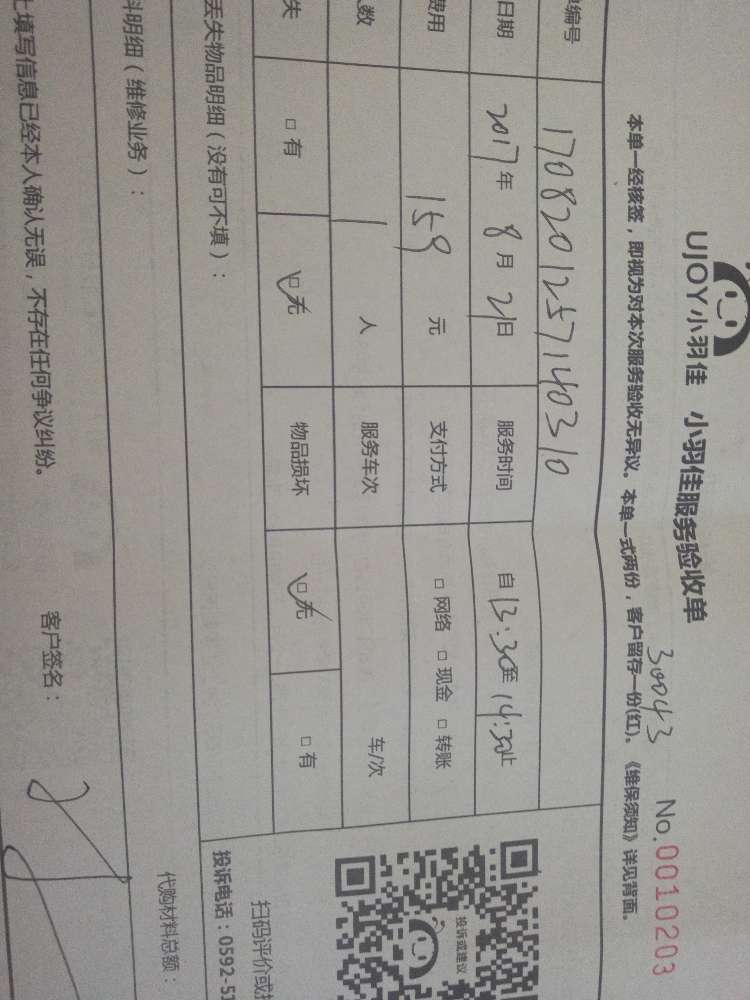 UJOY小羽佳 小羽佳服务验收单
30043
No.0010203
本单一经核签，即视为对本次服务验收无异议。本单一式两份，客户留存一份(红)。《维保须知》详见背面。
单编号 170820125714031０
日期 2017年 8月 21日 服务时间 自13:30至14:30止
费用 159 元 支付方式 □ 网络 □ 现金 □ 转账
人数 1 人 服务车次 车/次
失 □ 有 □ 无 物品损坏 □ 无 □ 有
丢失物品明细（没有可不填）：
投诉或建议
扫码评价或
投诉电话：0592-51
料明细（维修业务）：
代购材料总额：
上填写信息已经本人确认无误，不存在任何争议纠纷。
客户签名：